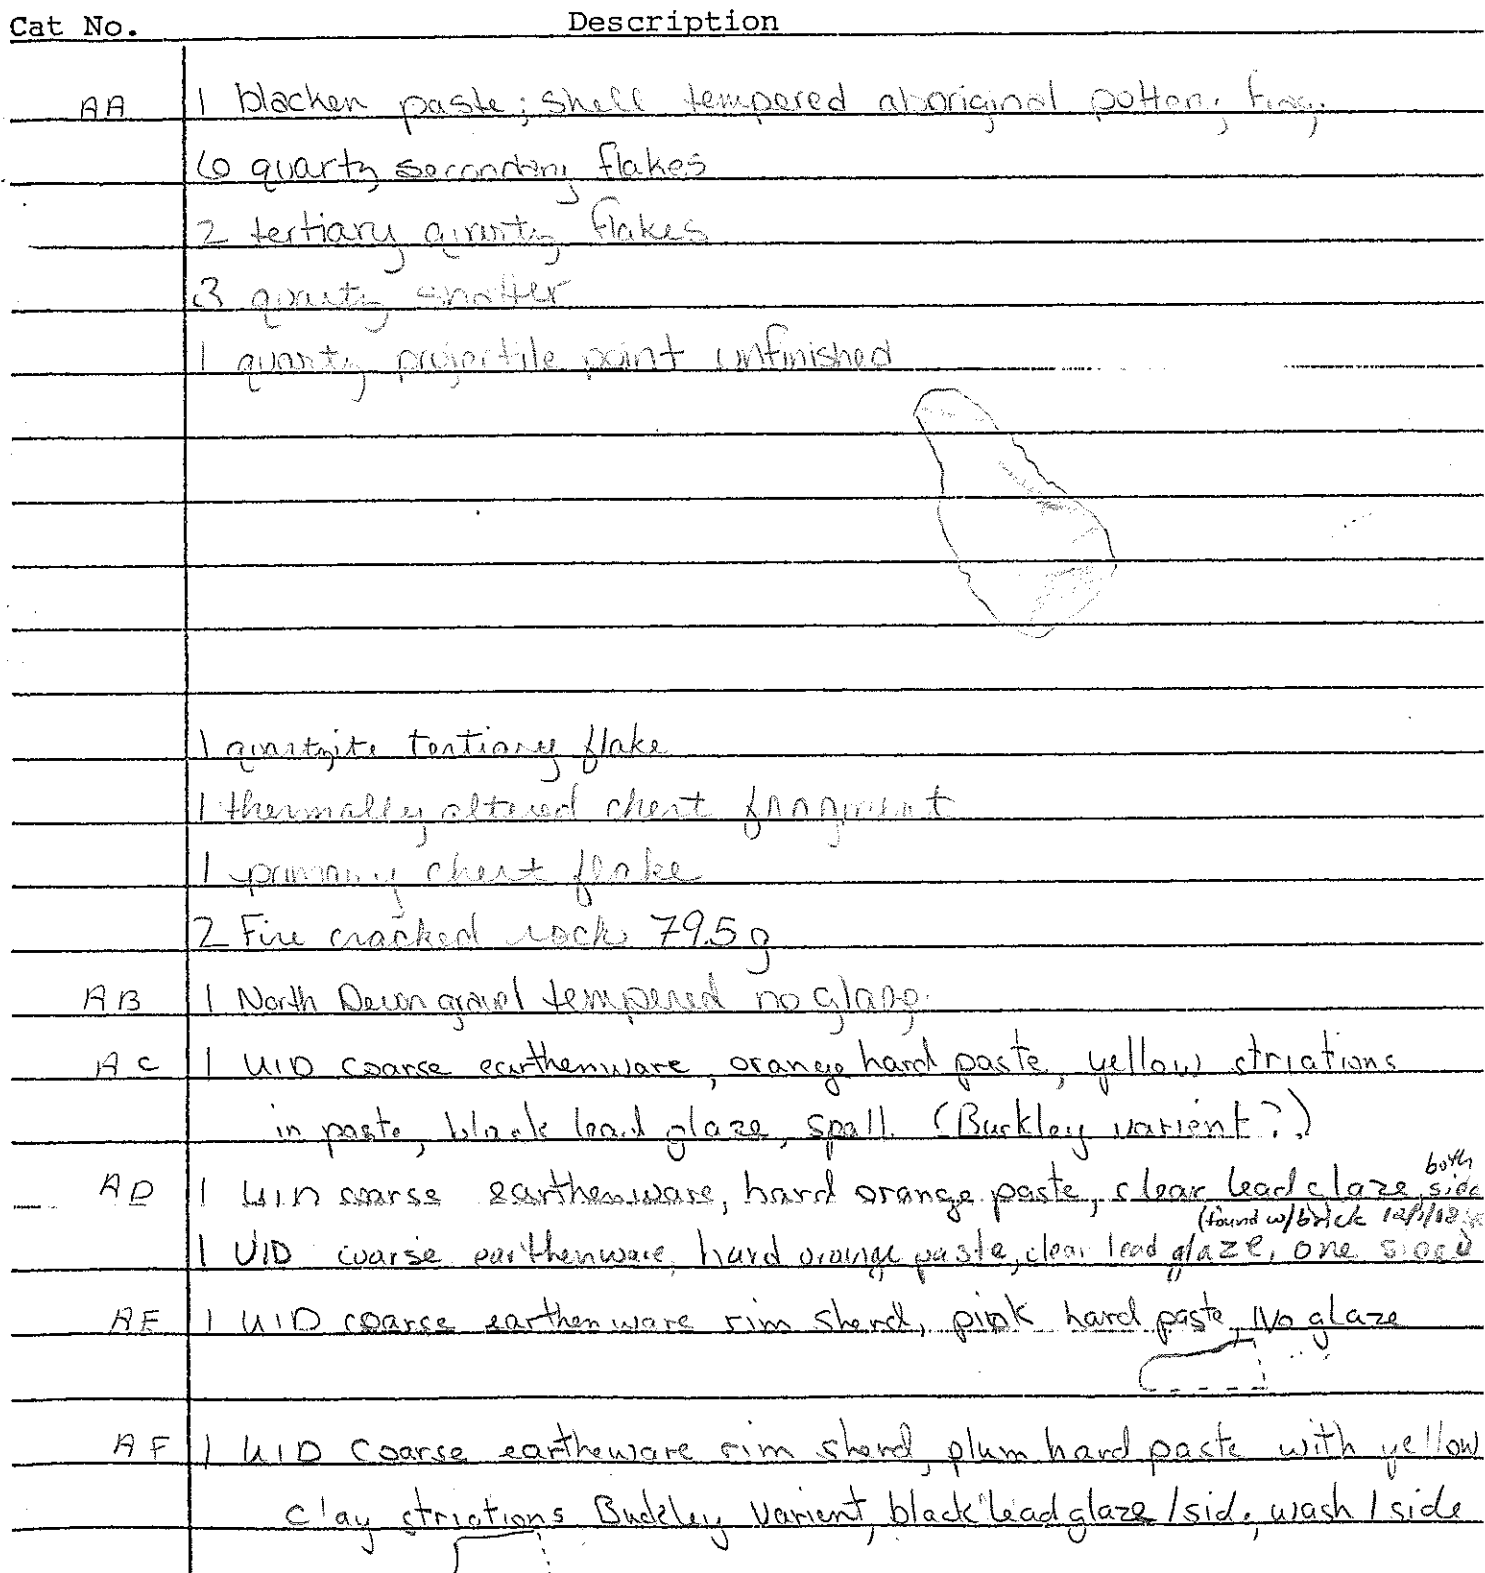 Cat No. Description
AA 1 blacken paste; shell tempered aboriginal pottery frag.
6 quartz secondary flakes
2 tertiary quartz flakes
3 quartz shatter
1 quartz projectile point unfinished
1 quartzite tertiary flake
1 thermally altered chert fragment
1 primary chert flake
2 Fire cracked rock 79.5 g
AB 1 North Devon gravel tempered no glaze.
AC 1 UID coarse earthenware, orange hard paste, yellow striations
in paste, black lead glaze, spall. (Buckley varient?)
AD 1 UID coarse earthenware, hard orange paste, clear lead glaze, both side
(found w/brick
1 UID coarse earthenware, hard orange paste, clear lead glaze, one sided
AE 1 UID coarse earthenware rim sherd, pink hard paste, No glaze
AF 1 UID Coarse eartheware rim sherd, plum hard paste with yellow
clay striations Buckley Varient, black lead glaze 1 side, wash 1 side